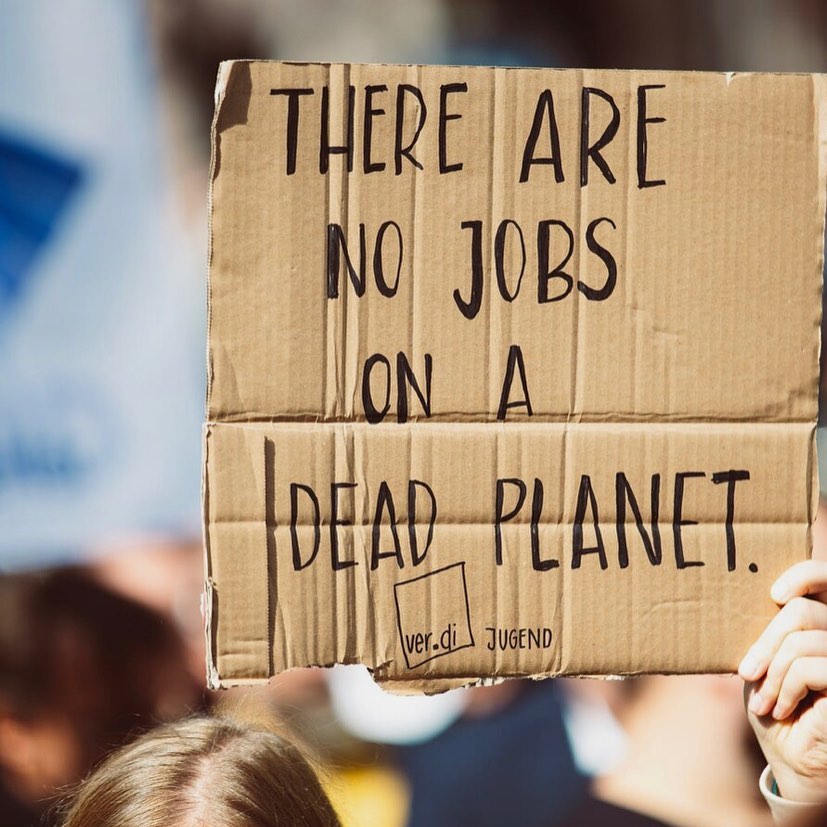 THERE ARE
NO JOBS
ON A
DEAD PLANET.
ver.di JUGEND